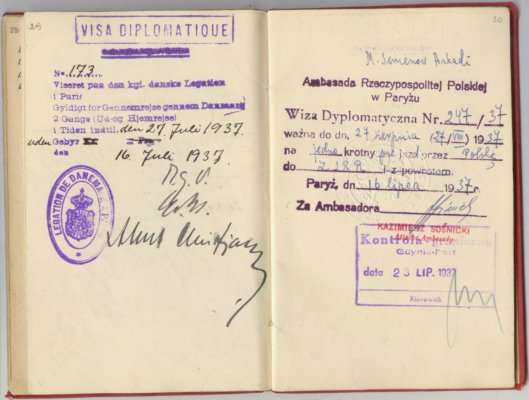 29
VISA DIPLOMATIQUE
No. 173
Viseret paa den kgl. danske Legation
i Paris
Gyldigt for Gennemrejse gennem Danmark
2 Gange (Ud-og Hjemrejse)
i Tiden indtil den 27. Juli 1937.
uden Gebyr
den 16. Juli 1937.
LEGATION DE DANEMARK
30
M. Semenov Arkadi
Ambasada Rzeczypospolitej Polskiej
w Paryżu
Wiza Dyplomatyczna Nr. 247/37
ważna do dn. 27 sierpnia (27/VIII) 1937
na jedno krotny przejazd przez Polskę
do ZSRR i z powrotem.
Paryż, dn. 16 lipca 1937 r.
Za Ambasadora
KAZIMIERZ SOŚNICKI
Attaché Ambasady
Kontrola graniczna
Gdynia-Port
data 23 LIP. 1937
Kierownik